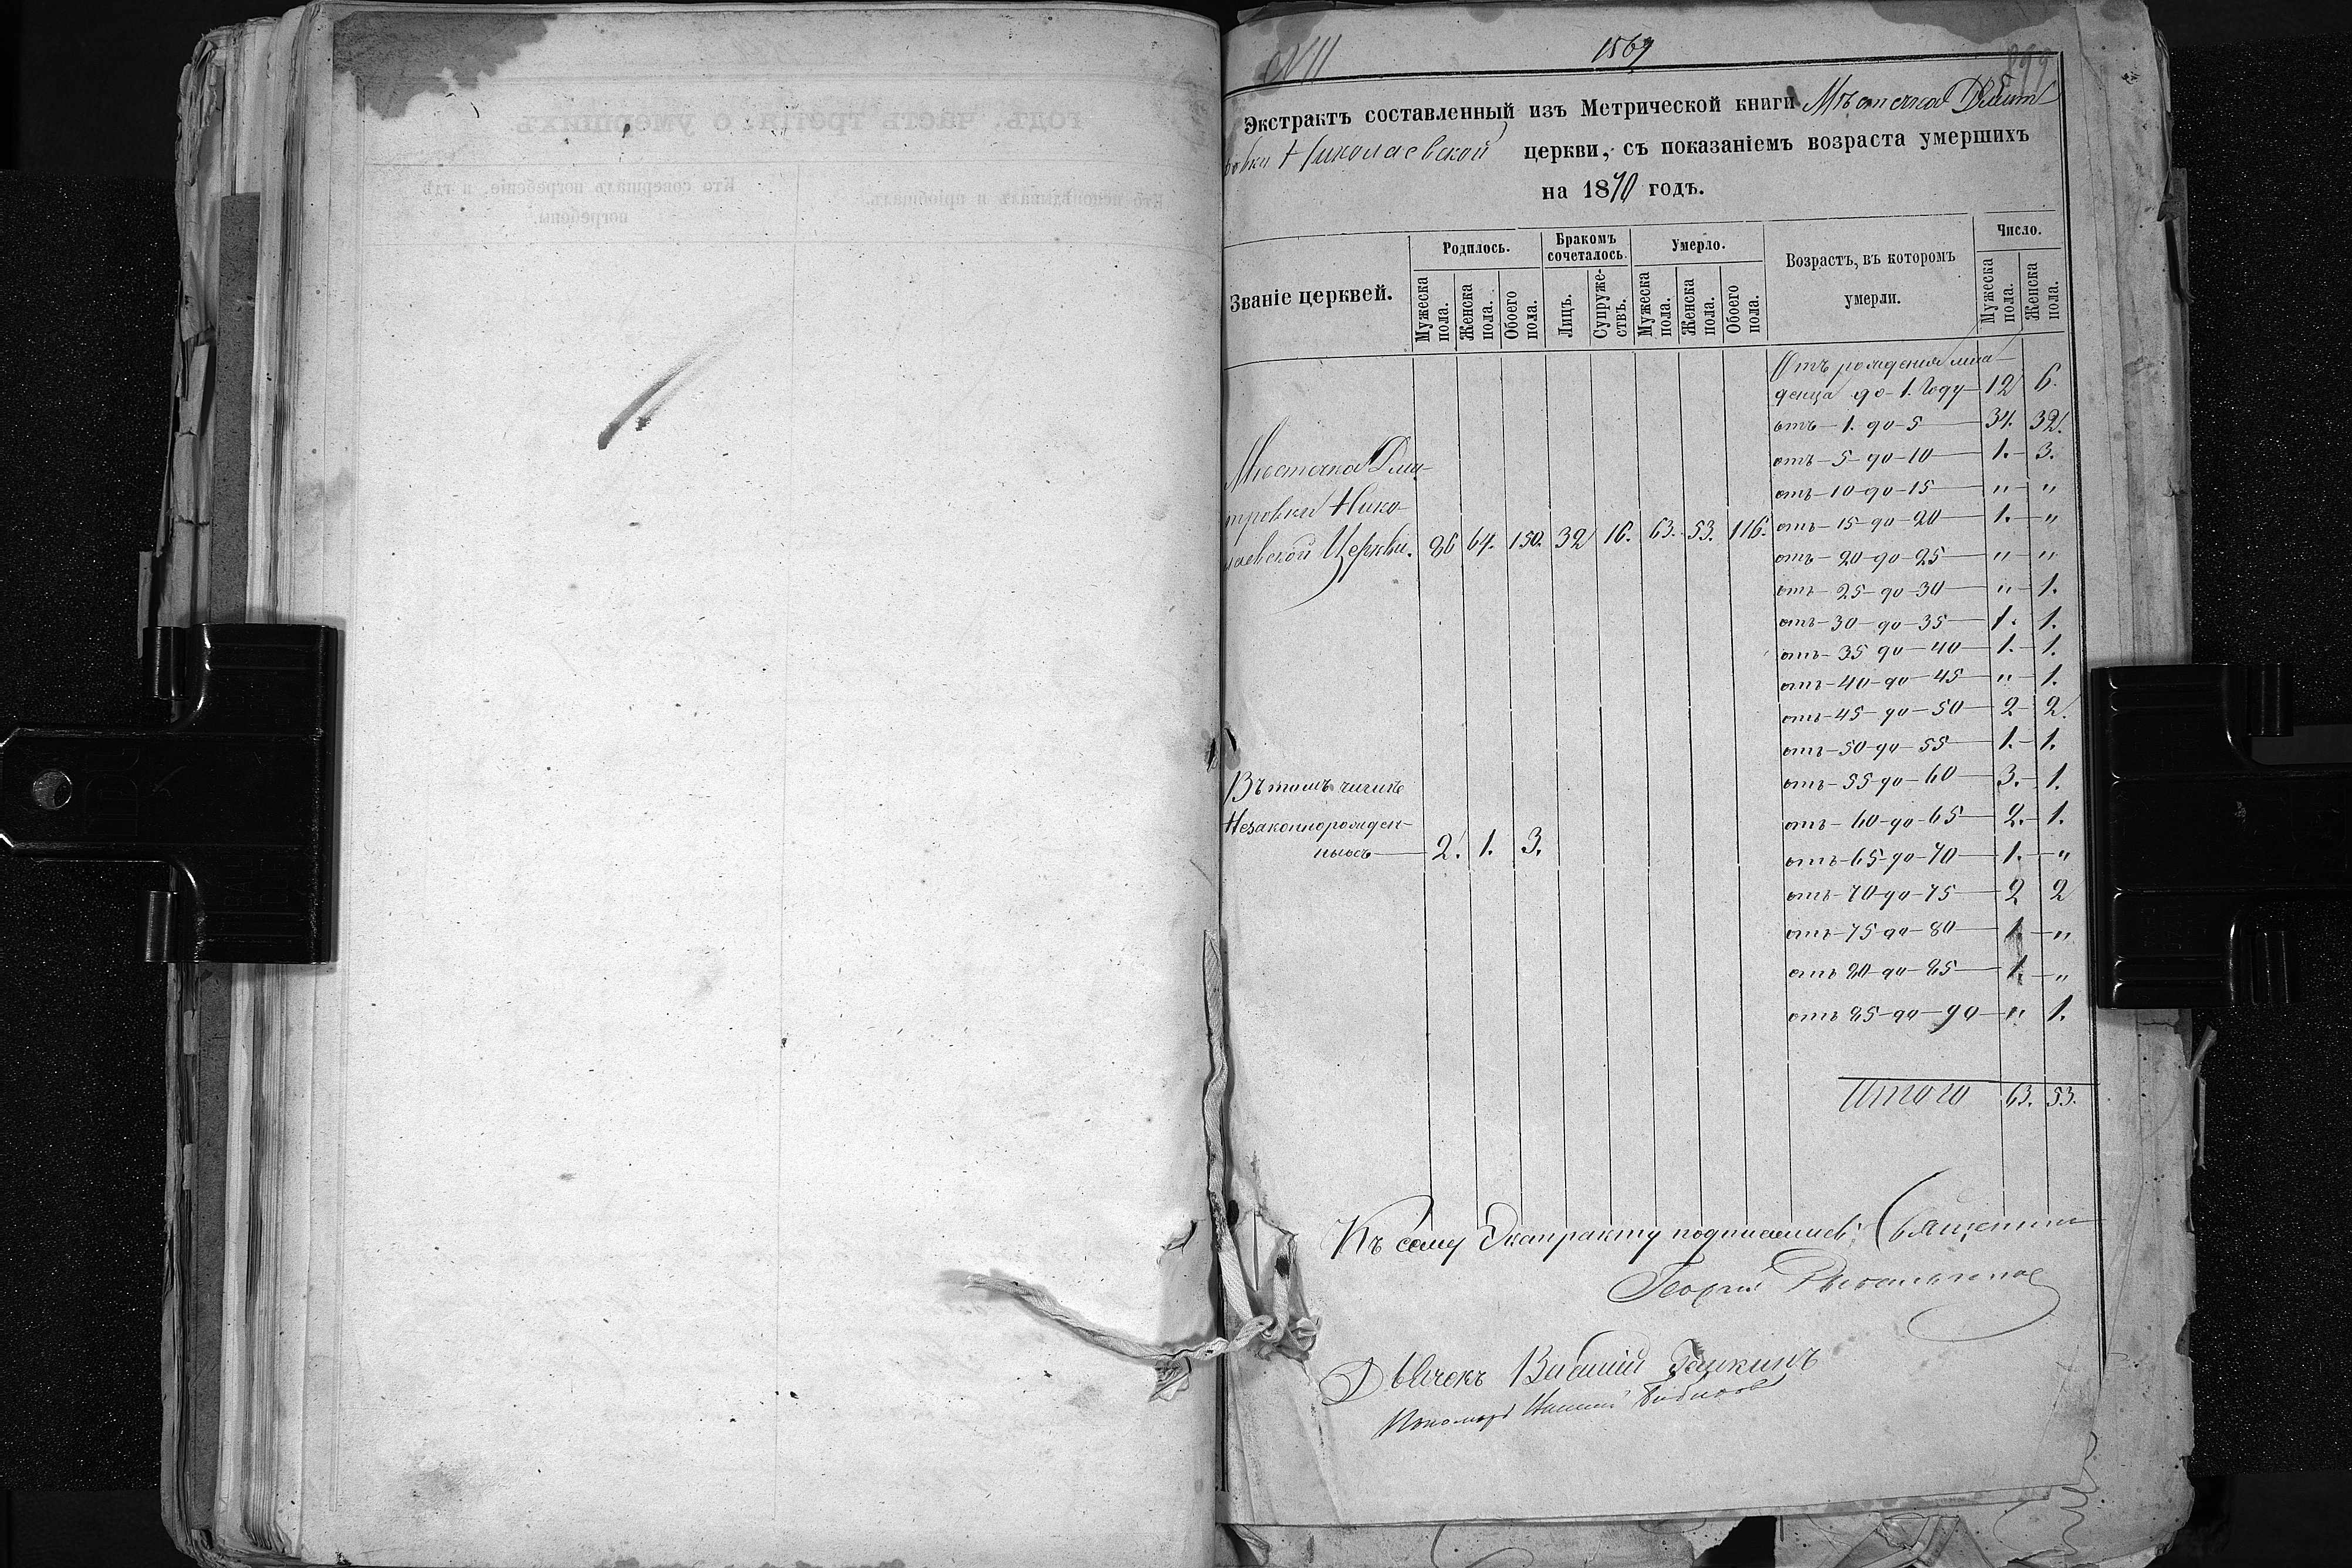 № 11
1569
899
Экстрактъ составленный изъ Метрической книги Мѣстечка Дмит
ровки Николаевской церкви, съ показаніемъ возраста умершихъ
на 1870 годъ.
Званіе церквей.
Родилось.
Бракомъ сочеталось.
Умерло.
Возрастъ, въ которомъ умерли.
Число.
Мужеска пола.
Женска пола.
Обоего пола.
Лицъ.
Супружествъ.
Мужеска пола.
Женска пола.
Обоего пола.
Мужеска пола.
Женска пола.
Отъ рожденія мла-
денца до 1. Году 12 6.
отъ 1. до 5 34. 32.
отъ 5 до 10 1. 3.
отъ 10 до 15 " "
Мѣстечка Дми-
тровки Нико-
лаевской Церкви. 86 64. 150. 32 16. 63. 53. 116.
отъ 15 до 20 1. "
отъ 20 до 25 " "
отъ 25 до 30 " 1.
отъ 30 до 35 1. 1.
отъ 35 до 40 1. 1.
отъ 40 до 45 " 1.
отъ 45 до 50 2 2.
отъ 50 до 55 1. 1.
отъ 55 до 60 3. 1.
отъ 60 до 65 2. 1.
Въ томъ числѣ
Незаконнорожден-
ныхъ 2. 1. 3.
отъ 65 до 70 1. "
отъ 70 до 75 2 2
отъ 75 до 80 1. "
отъ 80 до 85 1. "
отъ 85 до 90 " 1.
Итого 63. 53.
Къ сему Экстракту подписались: Священник
Георгій
Дьячокъ Василій
Пономарь